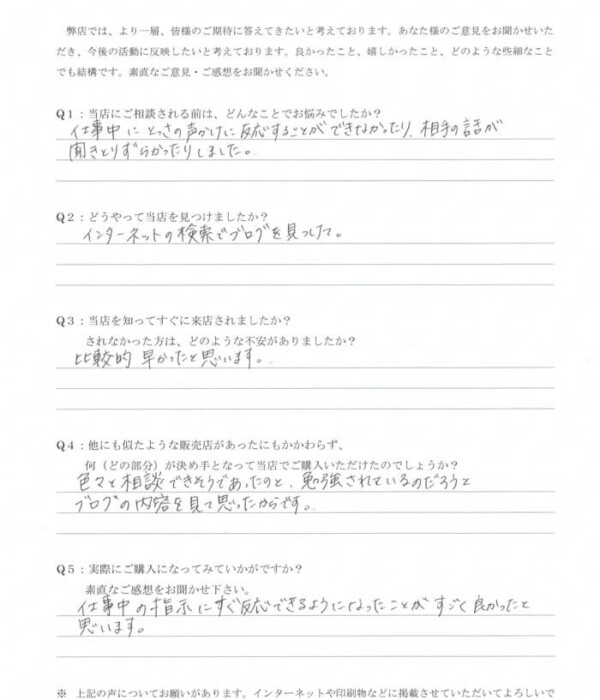 弊店では、より一層、皆様のご期待に答えてきたいと考えております。あなた様のご意見をお聞かせいた
だき、今後の活動に反映したいと考えております。良かったこと、嬉しかったこと、どのような些細なこと
でも結構です。素直なご意見・ご感想をお聞かせください。
Q1：当店にご相談される前は、どんなことでお悩みでしたか？
仕事中にとっさの声かけに反応することができなかったり、相手の話が
聞きとりずらかったりしました。
Q2：どうやって当店を見つけましたか？
インターネットの検索でブログを見つした。
Q3：当店を知ってすぐに来店されましたか？
されなかった方は、どのような不安がありましたか？
比較的早かったと思います。
Q4：他にも似たような販売店があったにもかかわらず、
何（どの部分）が決め手となって当店でご購入いただけたのでしょうか？
色々と相談できそうであったのと、勉強されているのだろうと
ブログの内容を見て思ったからです。
Q5：実際にご購入になってみていかがですか？
素直なご感想をお聞かせ下さい。
仕事中の指示にすぐ反応できるようになったことがすごく良かったと
思います。
※ 上記の声についてお願いがあります。インターネットや印刷物などに掲載させていただいてよろしいで